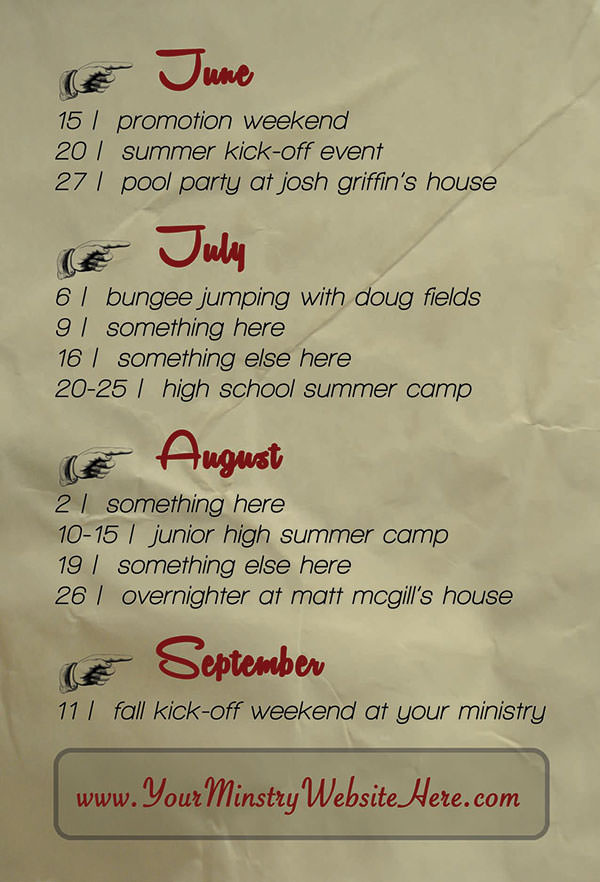 June
15 | promotion weekend
20 | summer kick-off event
27 | pool party at josh griffin's house
July
6 | bungee jumping with doug fields
9 | something here
16 | something else here
20-25 | high school summer camp
August
2 | something here
10-15 | junior high summer camp
19 | something else here
26 | overnighter at matt mcgill's house
September
11 | fall kick-off weekend at your ministry
www.YourMinstryWebsiteHere.com